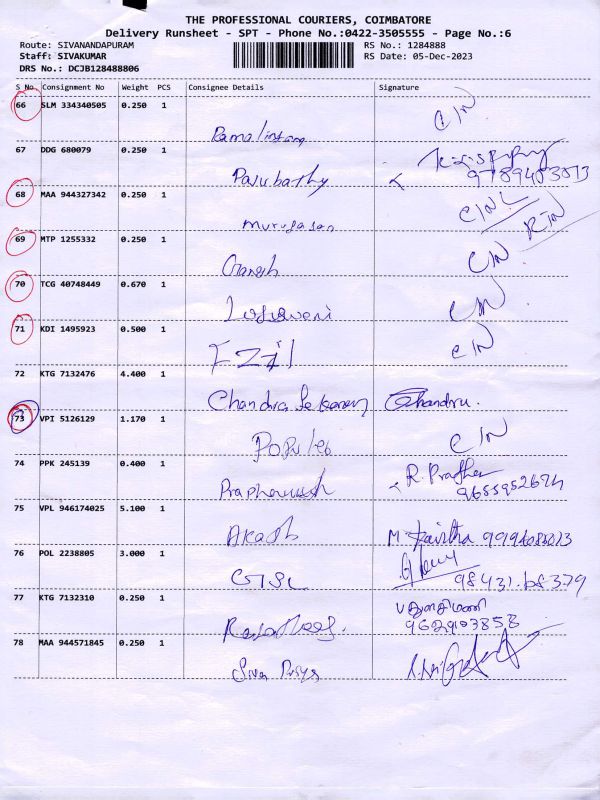 THE PROFESSIONAL COURIERS, COIMBATORE
Delivery Runsheet - SPT - Phone No.:0422-3505555 - Page No.:6
Route: SIVANANDAPURAM
RS No.: 1284888
Staff: SIVAKUMAR
RS Date: 05-Dec-2023
DRS No.: DCJB128488806
S No. Consignment No Weight PCS Consignee Details Signature
66 SLM 334340505 0.250 1
C/N
Ramalingam
67 DDG 680079 0.250 1
Parubathy
68 MAA 944327342 0.250 1
Murugasan
69 MTP 1255332 0.250 1
Ganesh C/N
70 TCG 40748449 0.670 1
C/N
71 KDI 1495923 0.500 1
C/N
Ezil
72 KTG 7132476 4.400 1
Chandru.
73 VPI 5126129 1.170 1
C/N
74 PPK 245139 0.400 1
75 VPL 946174025 5.100 1
Akash
76 POL 2238805 3.000 1
77 KTG 7132310 0.250 1
9629103858
78 MAA 944571845 0.250 1
Siva Priya